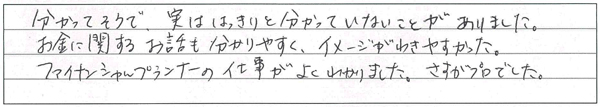 分かってそうで、実ははっきりと分かっていないことがありました。
お金に関するお話も分かりやすく、イメージがわきやすかった。
ファイナンシャルプランナーの仕事がよくわかりました。さすがプロでした。